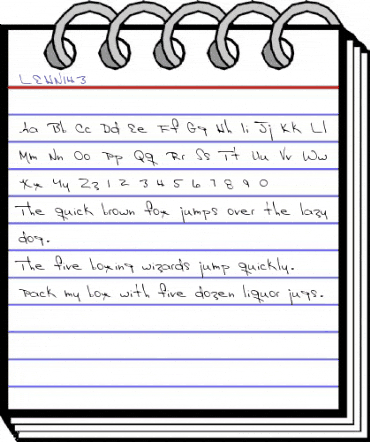 LEHN143
Aa Bb Cc Dd Ee Ff Gg Hh Ii Jj Kk Ll
Mm Nn Oo Pp Qq Rr Ss Tt Uu Vv Ww
Xx Yy Zz 1 2 3 4 5 6 7 8 9 0
The quick brown fox jumps over the lazy
dog.
The five boxing wizards jump quickly.
Pack my box with five dozen liquor jugs.